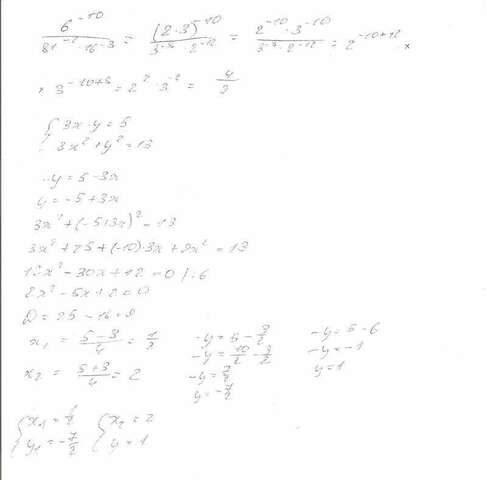 6^-10 / 81^-2 · 16^-3 = (2·3)^-10 / 3^-8 · 2^-12 = 2^-10 · 3^-10 / 3^-8 · 2^-12 = 2^-10+12 ×
× 3^-10+8 = 2^2 · 3^-2 = 4/9
{ 3x - y = 5
{ 3x² + y² = 13
-y = 5 - 3x
y = -5 + 3x
3x² + (-5+3x)² = 13
3x² + 25 + (-10)·3x + 9x² = 13
12x² - 30x + 12 = 0 /:6
2x² - 5x + 2 = 0
D = 25 - 16 = 9
x₁ = 5-3/4 = 1/2
x₂ = 5+3/4 = 2
-y = 5 - 3/2
-y = 10/2 - 3/2
-y = 7/2
y = -7/2
-y = 5 - 6
-y = -1
y = 1
{ x₁ = 1/2 { x₂ = 2
{ y₁ = -7/2 { y = 1